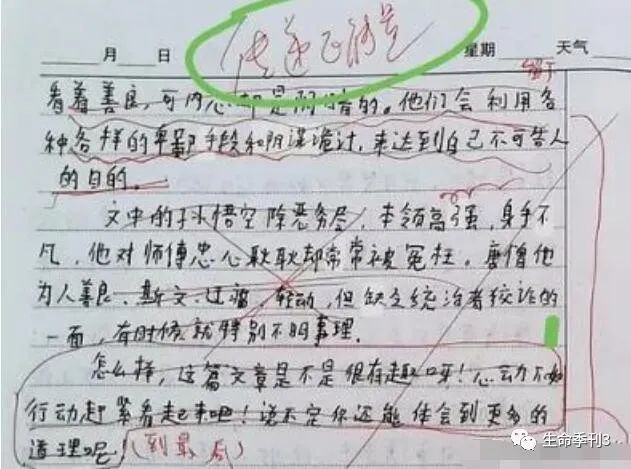 月 日 传递正能量 星期 天气
看着善良,可内心却是阴暗的。他们会利用各
种各样的卑鄙手段和阴谋诡计,来达到自己不可告人
的目的。
文中的孙悟空除恶务尽,本领高强,身手不
凡,他对师傅忠心耿耿却常常被冤枉。唐僧他
为人善良、斯文、迂腐、,但缺乏统治者狡诈的
一面,有时候就特别不明事理。
怎么样,这篇文章是不是很有趣呀!心动不如
行动赶紧看起来吧!说不定你还能体会到更多的
道理呢(到最后)
生命季刊3